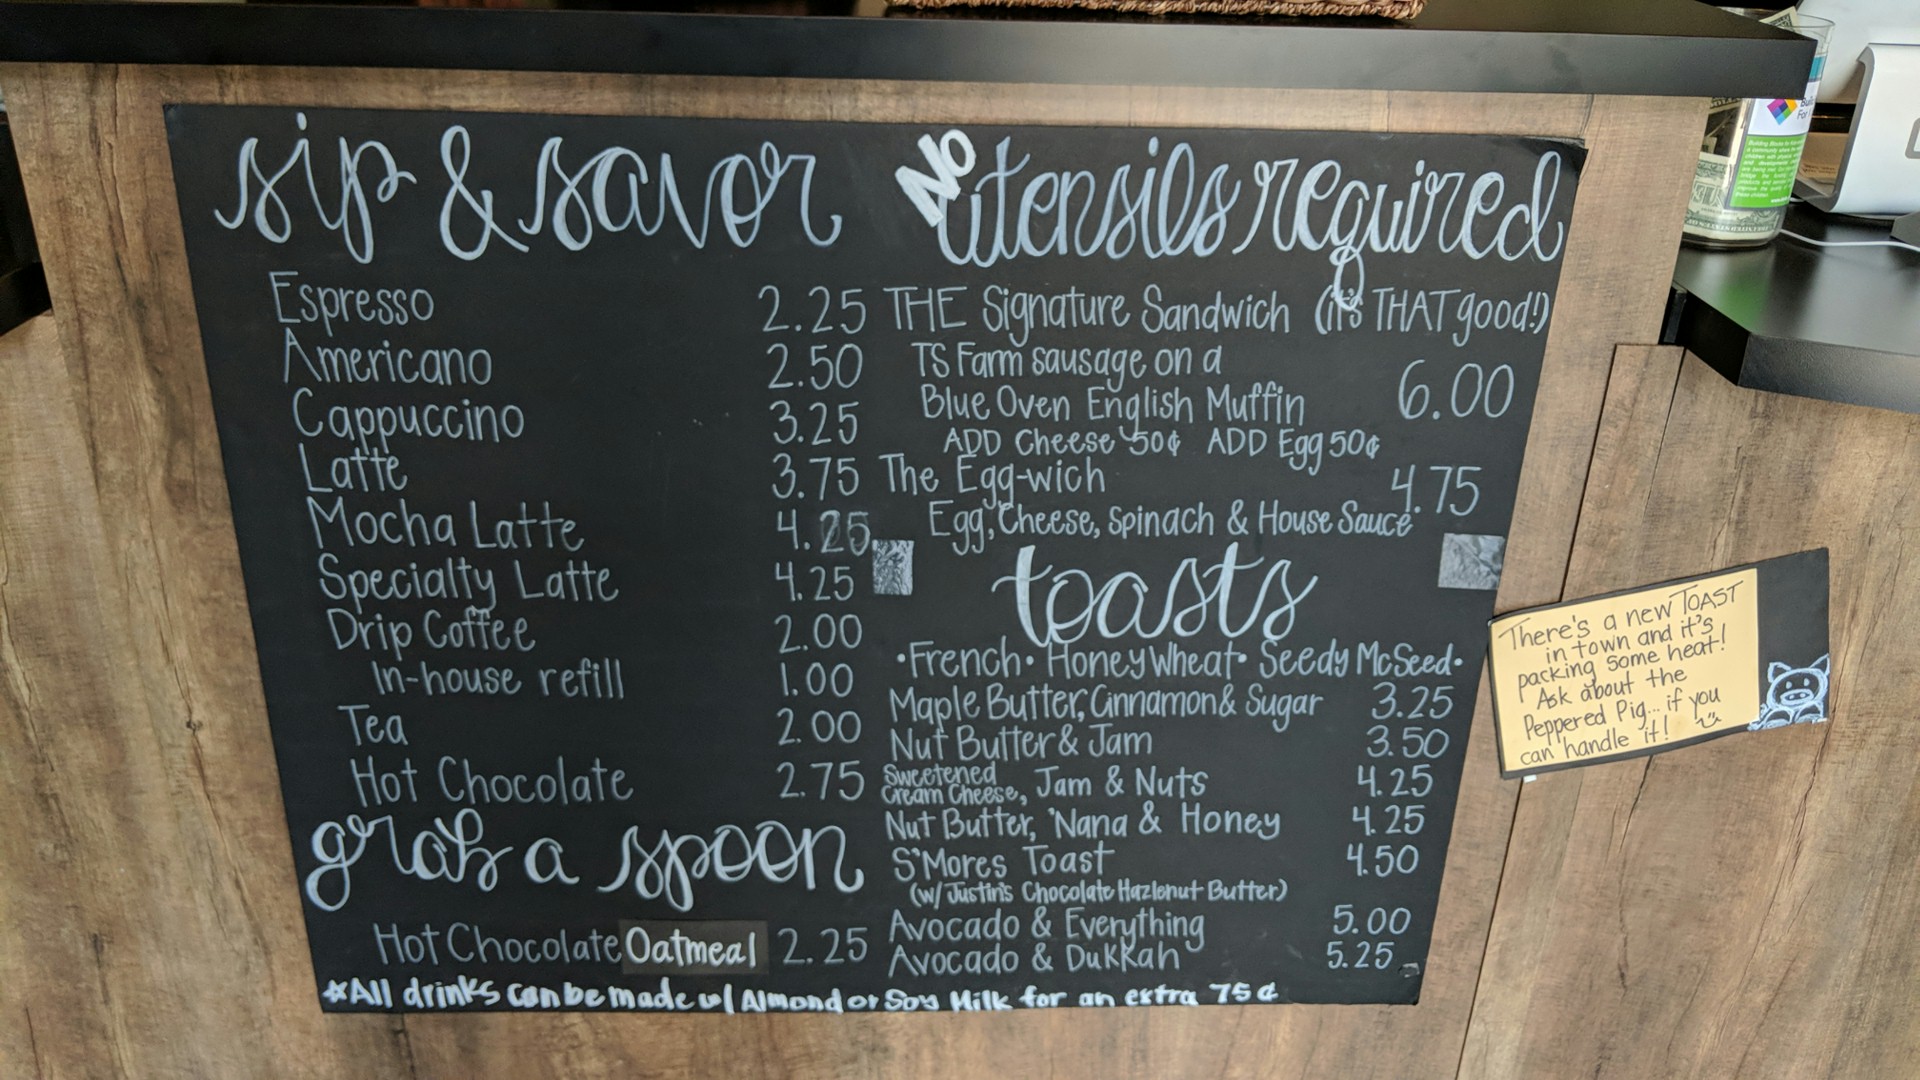 sip & savor
Espresso 2.25
Americano 2.50
Cappuccino 3.25
Latte 3.75
Mocha Latte 4.25
Specialty Latte 4.25
Drip Coffee 2.00
In-house refill 1.00
Tea 2.00
Hot Chocolate 2.75
grab a spoon
Hot Chocolate Oatmeal 2.25
No utensils required
THE Signature Sandwich (it's THAT good!)
TS Farm sausage on a
Blue Oven English Muffin 6.00
ADD Cheese 50¢ ADD Egg 50¢
The Egg-wich 4.75
Egg, Cheese, Spinach & House Sauce
toasts
•French• Honey Wheat• Seedy McSeed•
Maple Butter, Cinnamon & Sugar 3.25
Nut Butter & Jam 3.50
Sweetened
Cream Cheese, Jam & Nuts 4.25
Nut Butter, 'Nana & Honey 4.25
S'Mores Toast 4.50
(w/ Justin's Chocolate Hazlenut Butter)
Avocado & Everything 5.00
Avocado & Dukkah 5.25
*All drinks can be made w/ Almond or Soy Milk for an extra 75¢
There's a new TOAST
in town and it's
packing some heat!
Ask about the
Peppered Pig... if you
can handle it!